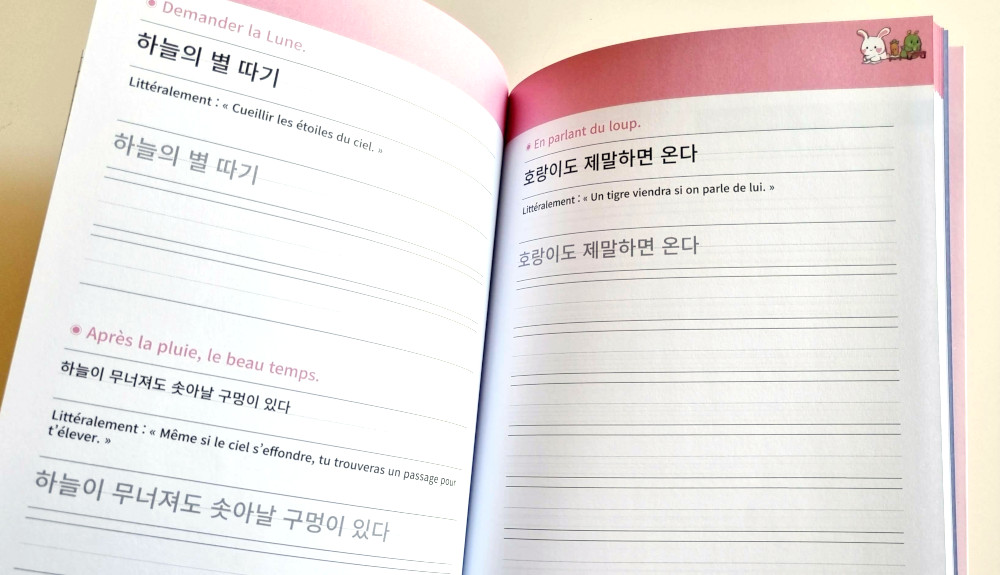 Demander la Lune.
하늘의 별 따기
Littéralement : « Cueillir les étoiles du ciel. »
하늘의 별 따기
Après la pluie, le beau temps.
하늘이 무너져도 솟아날 구멍이 있다
Littéralement : « Même si le ciel s'effondre, tu trouveras un passage pour
t'élever. »
하늘이 무너져도 솟아날 구멍이 있다
En parlant du loup.
호랑이도 제말하면 온다
Littéralement : « Un tigre viendra si on parle de lui. »
호랑이도 제말하면 온다